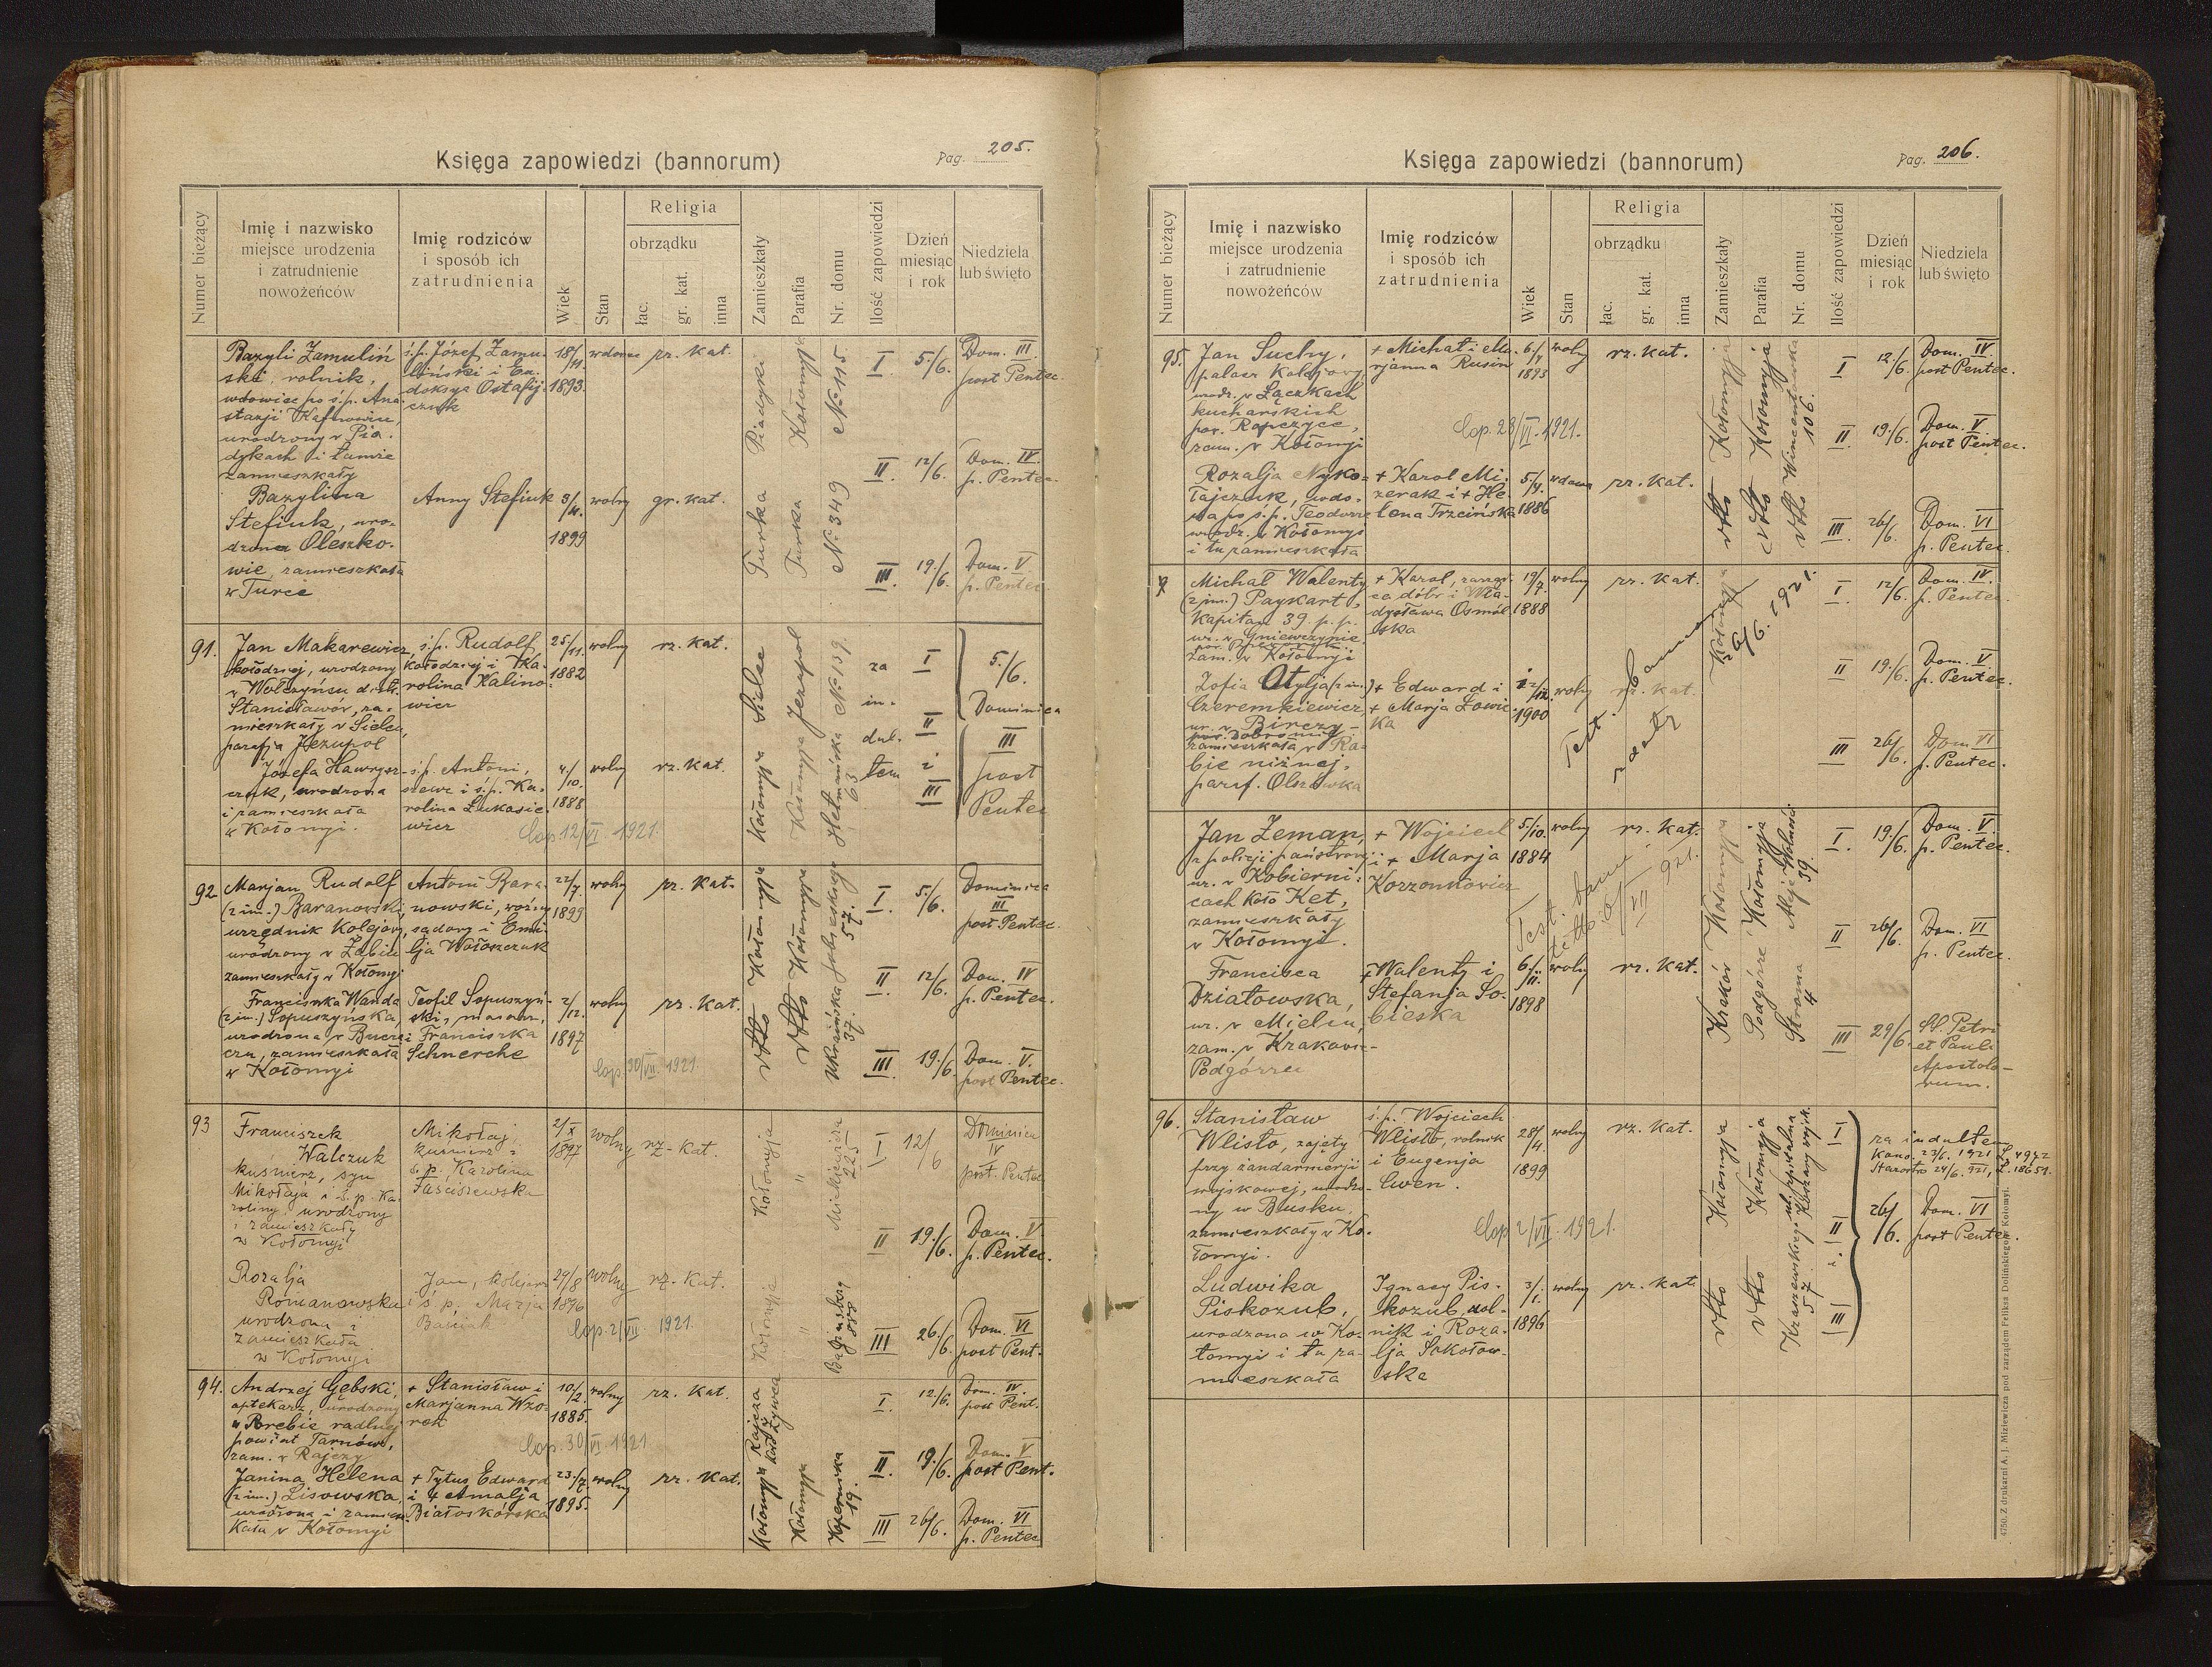 Księga zapowiedzi (bannorum)
Pag. 205.
Numer bieżący
Imię i nazwisko
miejsce urodzenia
i zatrudnienie
nowożeńców
Imię rodziców
i sposób ich
zatrudnienia
Wiek
Stan
Religia
obrządku
łac.
gr. kat.
inna
Zamieszkały
Parafia
Nr. domu
Ilość zapowiedzi
Dzień
miesiąc
i rok
Niedziela
lub święto
Bazyli Zamuliń
ski, rolnik,
wdowiec po ś.p. Ana
stazji
urodzony w Pia.
dykach i tamże
zamieszkały
ś.p. Józef Zamu.
liński i Eu.
doksya Ostafij
czuk
18/11. 1893.
wdowiec
rz. kat.
Piadyki
Kołomyja
No. 115.
I 5./6. Dom. III. post Pentec.
II. 12/6. Dom. IV. p. Pentec.
Bazylina
Stefiuk, uro-
dzona Oleszko.
wie, zamieszkała
w Turce
Anny Stefiuk
1899
wolny
gr. kat.
Turka
Turka
No. 349
III. 19./6. Dom. V p. Pentec
91.
Jan Makarewicz,
kołodziej, urodzony
w Wołczyńcu d.
Stanisławów, za-
mieszkały w Sielcu,
parafja Jezupol
ś.p. Rudolf,
kołodziej i Ka.
rolina Kalino-
wicz
25/11. 1882
wolny
rz. kat.
Sielec
Jezupol
No. 139.
za in- dul. tem
I II i III
5./6.
Dominica
III
post
Pentec
Józefa Hawrysz-
czuk, urodzona
i zamieszkała
w Kołomyi.
ś.p. Antoni,
szewc i ś.p. Ka.
rolina Łukasie.
wicz
4/10. 1888
wolny
rz. kat.
Kołomyja
Kołomyja
Hetmańska 63
Cop. 12/VI 1921.
92
Marjan Rudolf
(2 im.) Baranowski,
urzędnik kolejowy,
urodzony w Żabiu
zamieszkały w Kołomyi
Antoni Bara-
nowski, woźny
sądowy i Emi-
lja Wołoszczuk
22/7 1899
wolny
rz. kat.
Kołomyja
Kołomyja
Sobieskiego 57.
I. 5./6. Dominica III post Pentec.
II. 12/6. Dom. IV p. Pentec.
Franciszka Wanda
(2 im.) Sopuszyńska,
urodzona w Bucza
czu, zamieszkała
w Kołomyi
Teofil Sopuszyń-
ski, masarz,
i Franciszka
Schnerche
2/12. 1897
wolny
rz. kat.
dtto
dtto
Ukraińska 37.
III 19./6. Dom. V. post Pentec.
Cop. 30/VII. 1921.
93
Franciszek
Walczuk
kuśnierz, syn
Mikołaja i ś.p. Ka.
roliny, urodzony
i zamieszkały
w Kołomyi
Mikołaj,
kuśnierz i
ś.p. Karolina
Faściszewska
2/X 1897
wolny
rz-kat.
Kołomyja
"
Mickiewicza 225
I 12/6 Dominica IV post. Pentec
II 19./6. Dom. V. p. Pentec.
Rozalja
Romanowska
urodzona i
zamieszkała
w Kołomyi
Jan, kolejarz
i ś.p. Marja
Basiak
29/8 1896
wolny
rz. kat.
Kołomyja
"
Baginsky 88
III 26./6. Dom. VI post Pent.
Cop. 2/VII. 1921.
94.
Andrzej Gębski,
aptekarz, urodzony
w Porębie radlnej
powiat Tarnów,
zam. w Rajczy
+ Stanisław i
Marjanna Wzo-
rek
10/2. 1885.
wolny
rz. kat.
Rajcza
koło Żywca
I. 12./6. Dom. IV. post Pent.
Cop. 30/VI 1921
Janina Helena
(2 im.) Lisowska,
urodzona i zamiesz
kała w Kołomyi
+ Tytus Edward
i + Amalja
Białoskórska
23./7. 1895.
wolny
rz. kat.
Kołomyja
Kołomyja
Kopernika 19.
II. 19./6. Dom. V post Pent.
III 26/6. Dom. VI p. Pentec
Księga zapowiedzi (bannorum)
Pag. 206.
Numer bieżący
Imię i nazwisko
miejsce urodzenia
i zatrudnienie
nowożeńców
Imię rodziców
i sposób ich
zatrudnienia
Wiek
Stan
Religia
obrządku
łac.
gr. kat.
inna
Zamieszkały
Parafia
Nr. domu
Ilość zapowiedzi
Dzień
miesiąc
i rok
Niedziela
lub święto
95.
Jan Suchy,
palacz kolejowy
urodz. w Łączkach
kucharskich
pow. Ropczyce,
zam. w Kołomyi
+ Michał i Ma.
rjanna Rusin
1893
wolny
rz. kat.
Kołomyja
Kołomyja
Wincentówka 106.
I 12./6. Dom. IV. post Pentec.
II 19./6. Dom. V post Pentec.
Cop. 28/VI. 1921.
Rozalja Nyko-
łajczuk, wdo-
wa po ś.p. Teodorze
urodz. w Kołomyi
i tu zamieszkała
+ Karol Mi-
zerak i + He
lena Trzcińska
1886
wdowa
rz. kat.
dtto
dtto
dtto
III 26/6. Dom. VI p. Pentec.
Michał Walenty
(2 im.) Paykart,
kapitan 39. p.p.
ur. w Gniewczynie
zam. w Kołomyi
+ Karol, zarząd-
ca dóbr i Wła-
dysława Osmól
ska
19/7. 1888
wolny
rz. kat.
Kołomyja
I. 12/6. Dom. IV. p. Pentec.
II 19./6. Dom. V. p. Pentec.
Zofia Otylja (2 im.)
Czeremkiewicz,
ur. w Birczy-
pow. Dobromil
zamieszkała w Ra-
bie niżnej,
paraf. Olszówka
+ Edward i
+ Marja Łowic
ka
1900
wolny
rz. kat.
III 26/6. Dom VI p. Pentec.
Test. bannorum
26/6. 1921.
Jan Zeman,
z policji państwow.
ur. w Kobierni-
cach koło Kęt,
zamieszkały
w Kołomyi.
+ Wojciech
i + Marja
Korzonkowicz
5/10. 1884
wolny
rz. kat.
Kołomyja
Kołomyja
Aleje Wolności 39.
I. 19./6. Dom. V. p. Pentec.
II 26/6. Dom. VI p. Pentec.
Francisca
Działowska,
ur. w Mielcu,
zam. w Krakowie-
Podgórzu
+ Walenty i
Stefanja So-
bieska
6/11. 1898
wolny
rz. kat.
Kraków
Podgórze
Stroma 4
III 29/6. St. Petri et Pauli Apostolo-rum.
96.
Stanisław
Wlisło, zajęty
przy żandarmerji
wojskowej, urodzo-
ny w Busku,
zamieszkały w Ko-
łomyi.
ś.p. Wojciech
Wlisło, rolnik
i Eugenja
Cwen.
28/4. 1899
wolny
rz. kat.
Kołomyja
Kołomyja
I II i III
za indultem
Kons. 23/6. 1921 L. 4972
Starostwo 24/6. 921, L. 18651.
26/6. Dom. VI post Pentec.
Cop. 2/VII. 1921.
Ludwika
Piskozub,
urodzona w Ko-
łomyi i tu za-
mieszkała
Ignacy Pis-
kozub, rol-
nik i Roza-
lja Sokołow-
ska
3/1. 1896
wolny
rz. kat.
dtto
dtto
Kraszewskiego 57
4750. Z drukarni A. J. Miziewicza pod zarządem Feliksa Dolińskiego w Kołomyi.